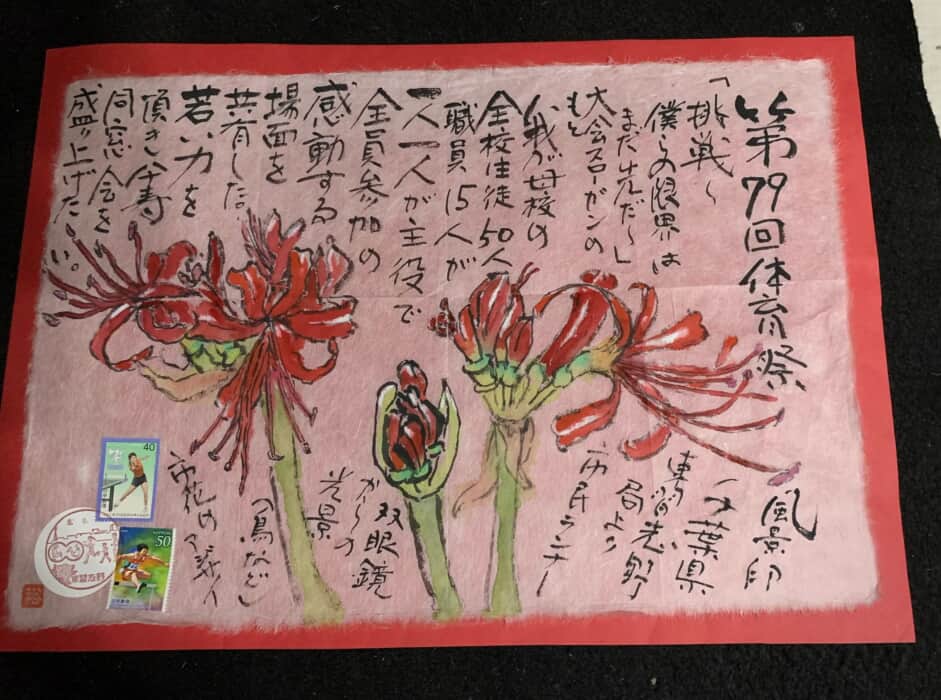 第79回体育祭
「挑戦〜
僕らの限界は
まだまだだ〜」
大会スローガンの
もと
我が母校の
全校生徒50人
職員15人が
一人一人が主役で
全員参加の
感動する
場面を
共有した。
若い力を
頂き傘寿
同窓会を
盛り上げたい。
風景印
千葉県
東習志野
局より
市民ランナー
双眼鏡
からの
光景
「鳥など」
市花のアジサイ
40
50
東習志野